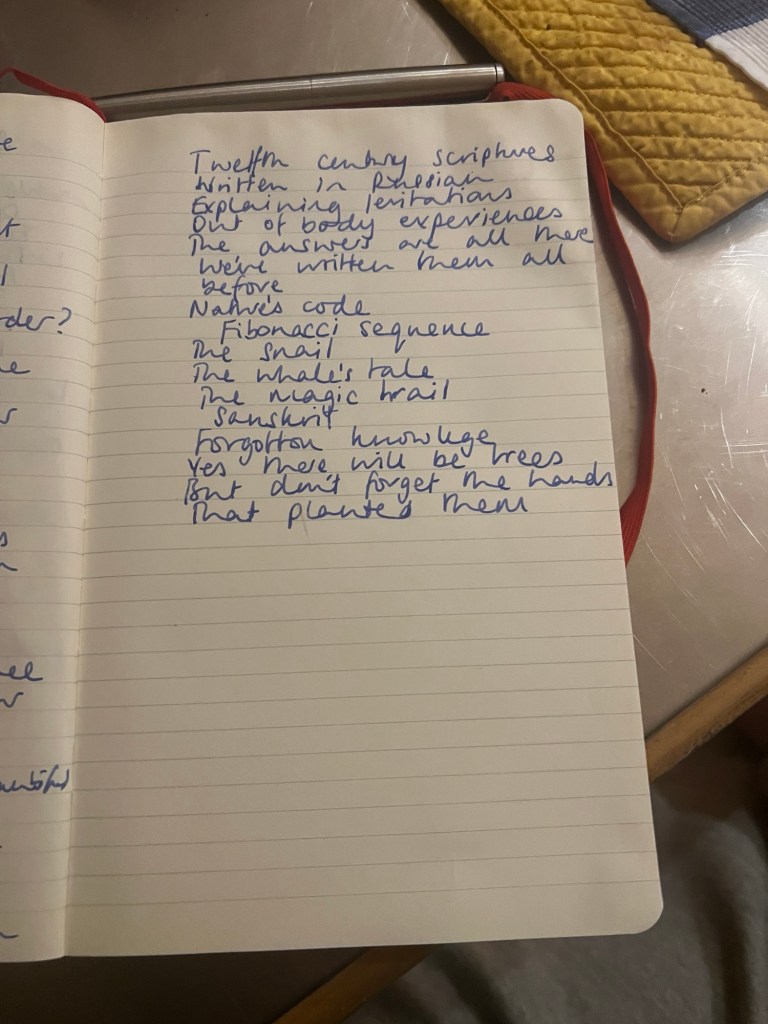 e
t
l
rder?
he
s
s
n
ee
w
Twelfth century scriptures
Written in Russian
Explaining levitations
Out of body experiences
The answers are all there
We've written them all
before
Nature's code
Fibonacci sequence
The snail
The whale's tale
The magic trail
Sanskrit
Forgotton knowlege
Yes there will be trees
But don't forget the hands
That planted them